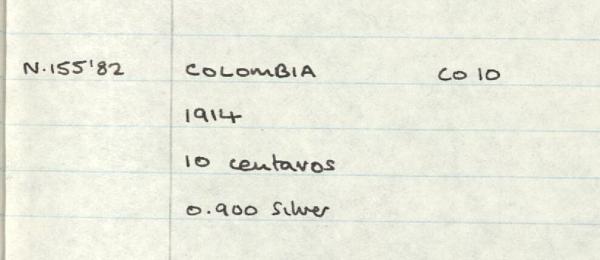 N.155'82 COLOMBIA CO 10
1914
10 centavos
0.900 Silver